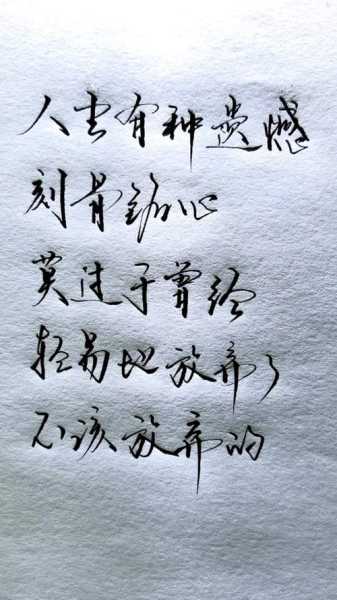 人生有种遗憾
刻骨铭心
莫过于曾经
轻易地放弃了
不该放弃的